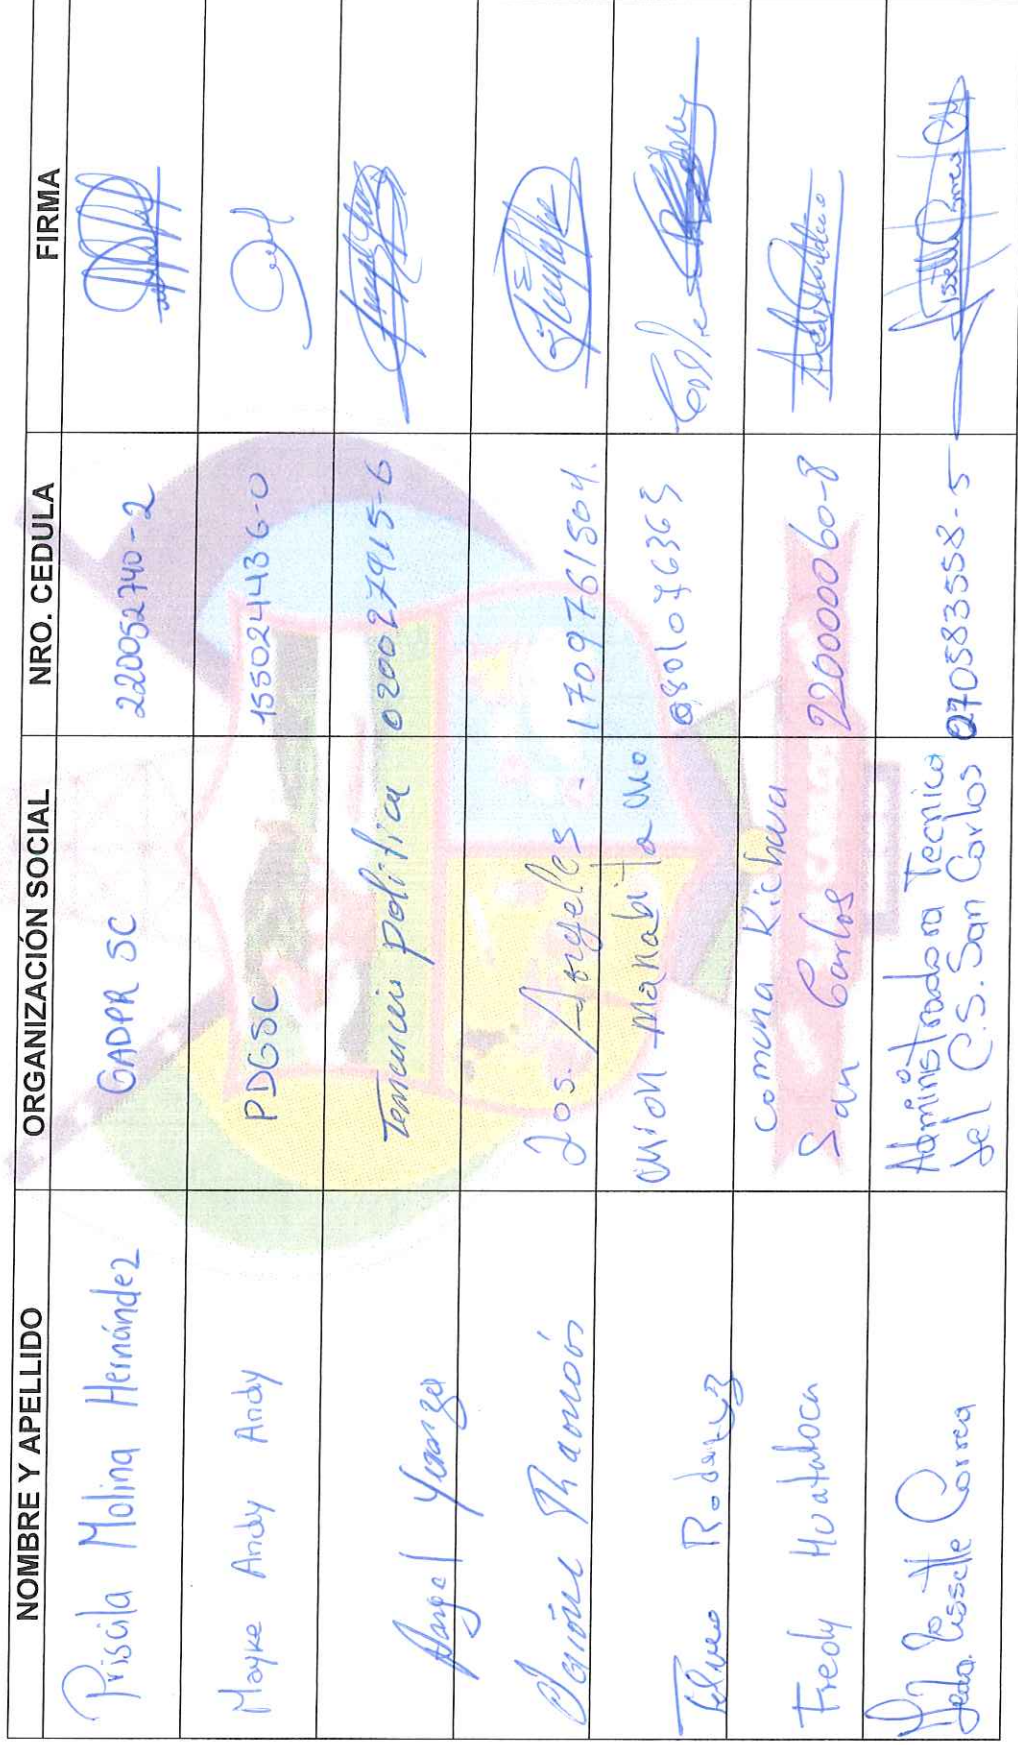 NOMBRE Y APELLIDO ORGANIZACIÓN SOCIAL NRO. CEDULA FIRMA
Priscila Molina Hernández GADPR SC 220052740-2
Mayke Andy Andy PDGSC 155024436-0
Angel Yanza Tenencia politica 020027915-6
Ramós Los Angeles - 1709761504.
Telmo Rodriguez union manabita uno 0801076363
Fredy Huatatoca comuna Kichwa
San Carlos 220000060-8
Lissette Correa Administradora Tecnico
del C.S. San Carlos 070583558-5